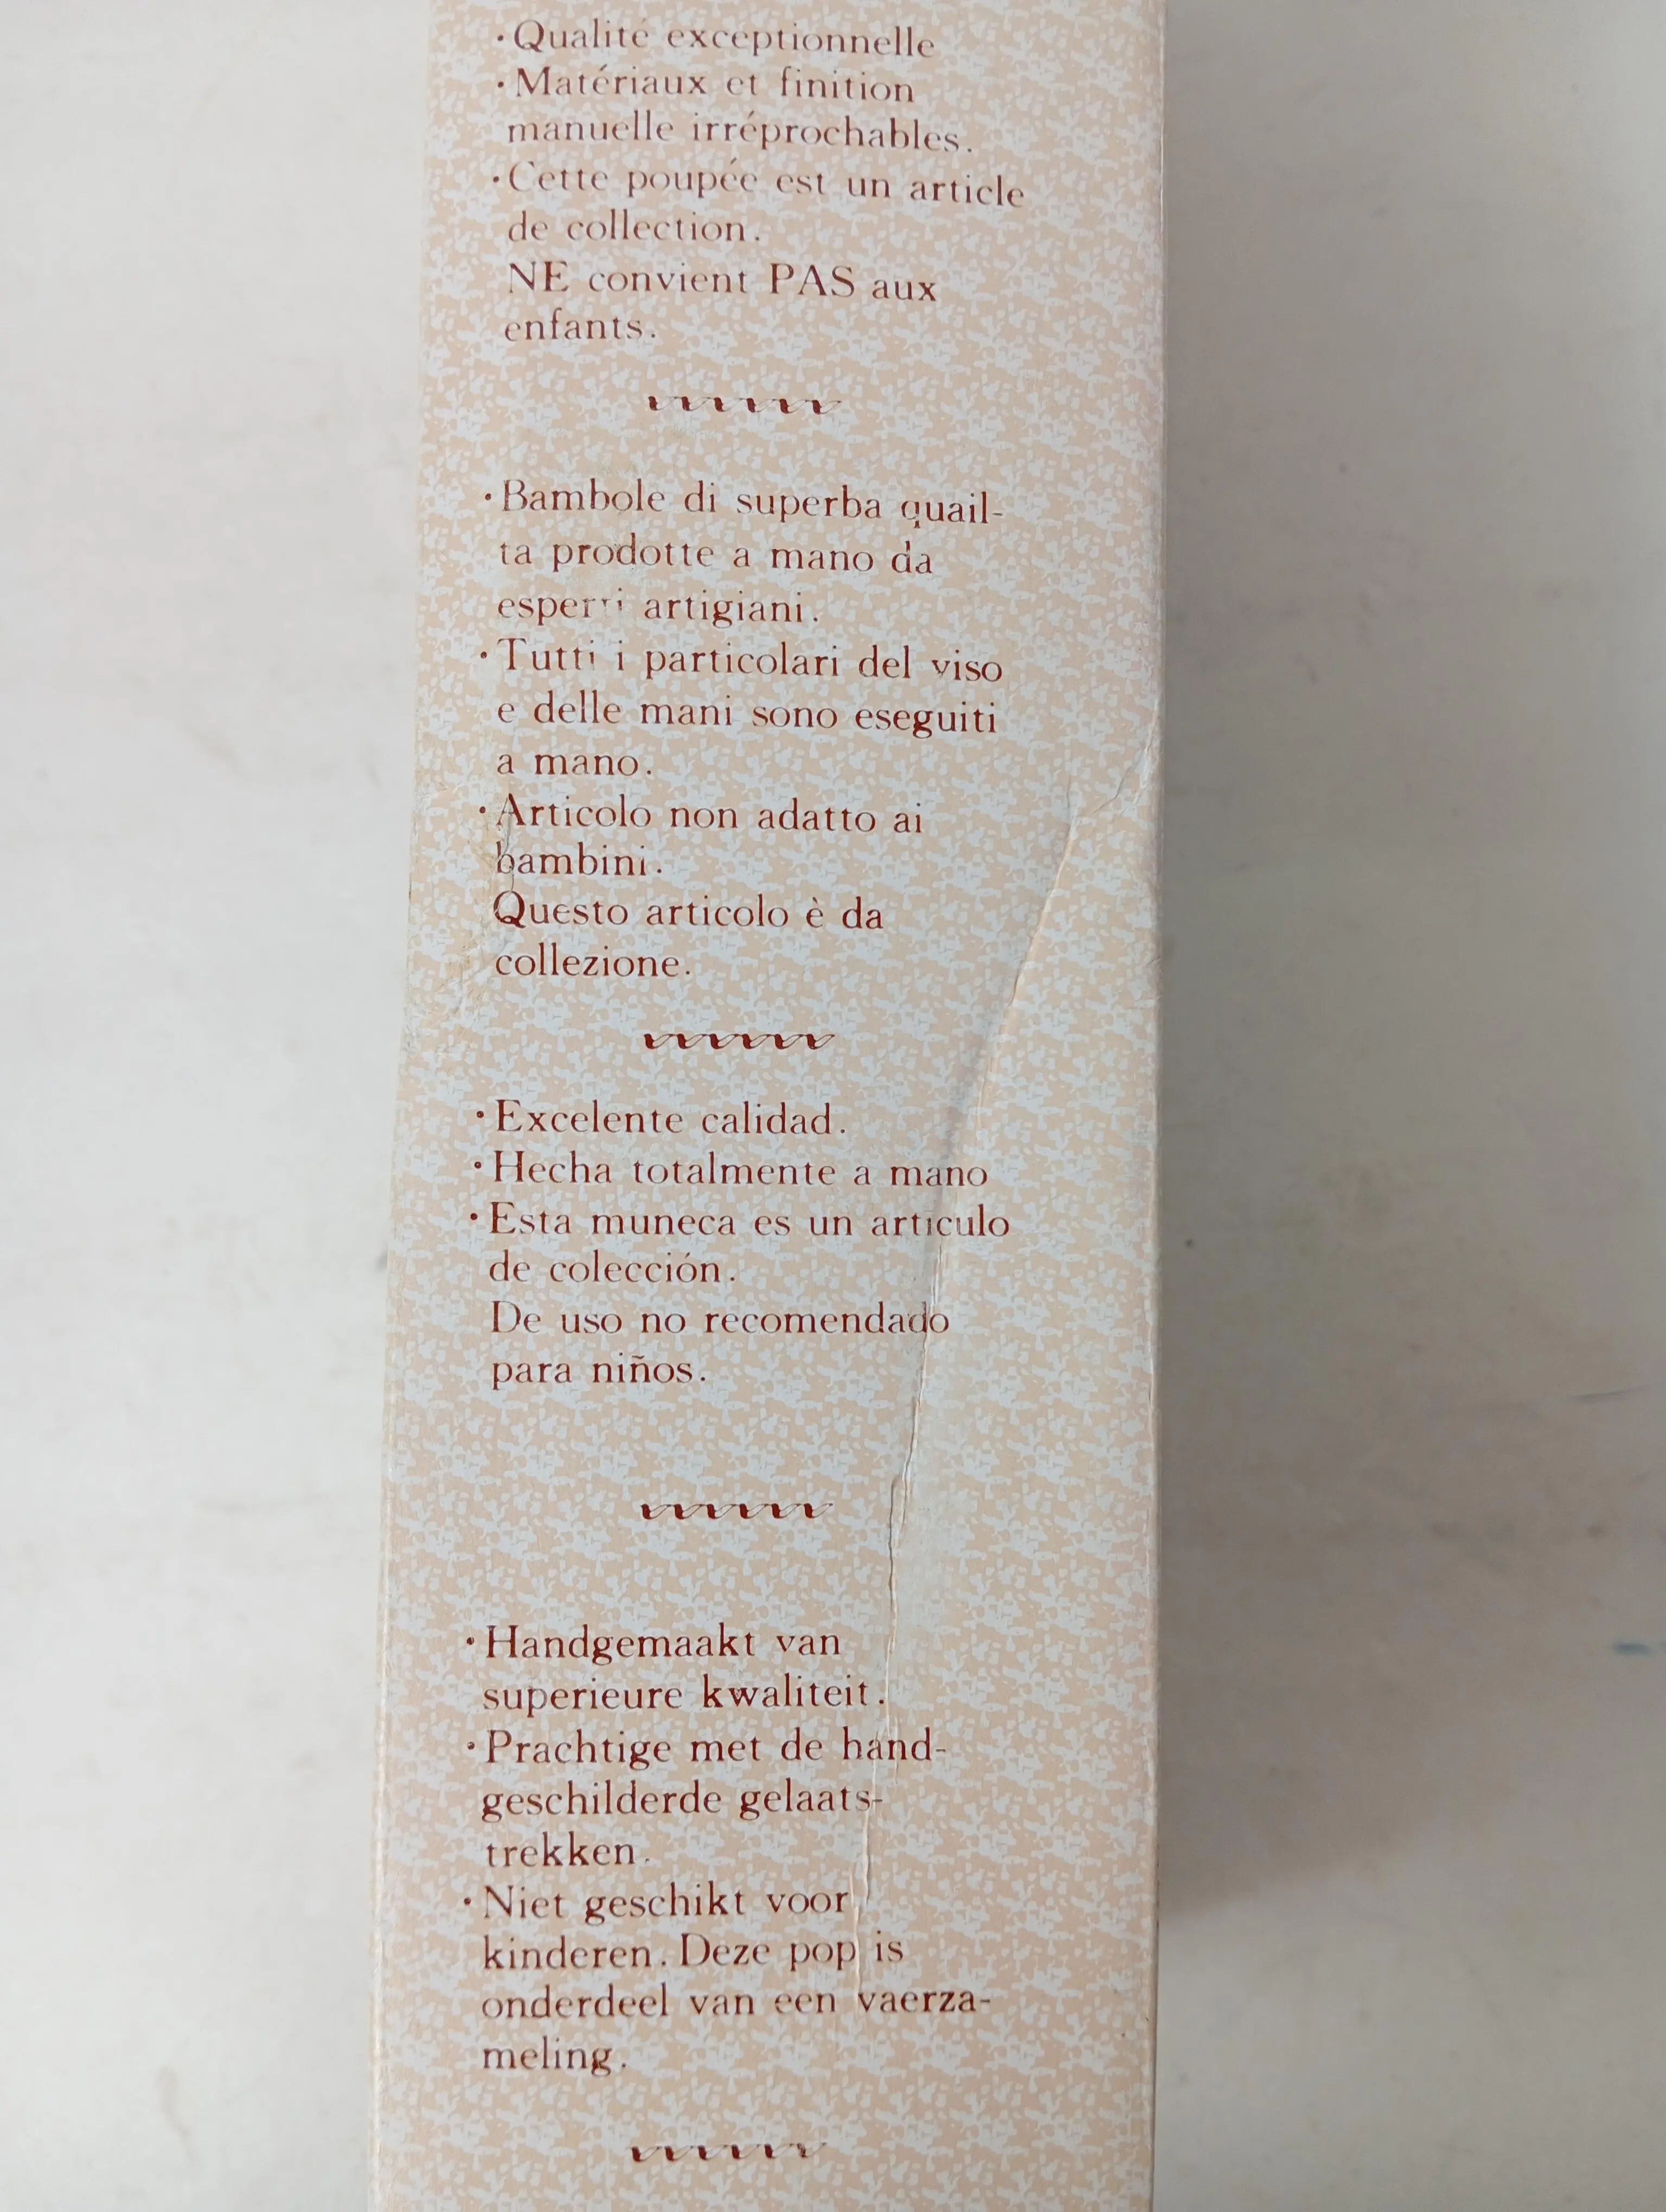 ·Qualité exceptionnelle
·Matériaux et finition
manuelle irréprochables.
·Cette poupée est un article
de collection.
NE convient PAS aux
enfants.
·Bambole di superba quail-
ta prodotte a mano da
esperti artigiani.
·Tutti i particolari del viso
e delle mani sono eseguiti
a mano.
·Articolo non adatto ai
bambini.
Questo articolo è da
collezione.
·Excelente calidad.
·Hecha totalmente a mano
·Esta muneca es un articulo
de colección.
De uso no recomendado
para niños.
·Handgemaakt van
superieure kwaliteit.
·Prachtige met de hand-
geschilderde gelaats-
trekken.
·Niet geschikt voor
kinderen. Deze pop is
onderdeel van een vaerza-
meling.